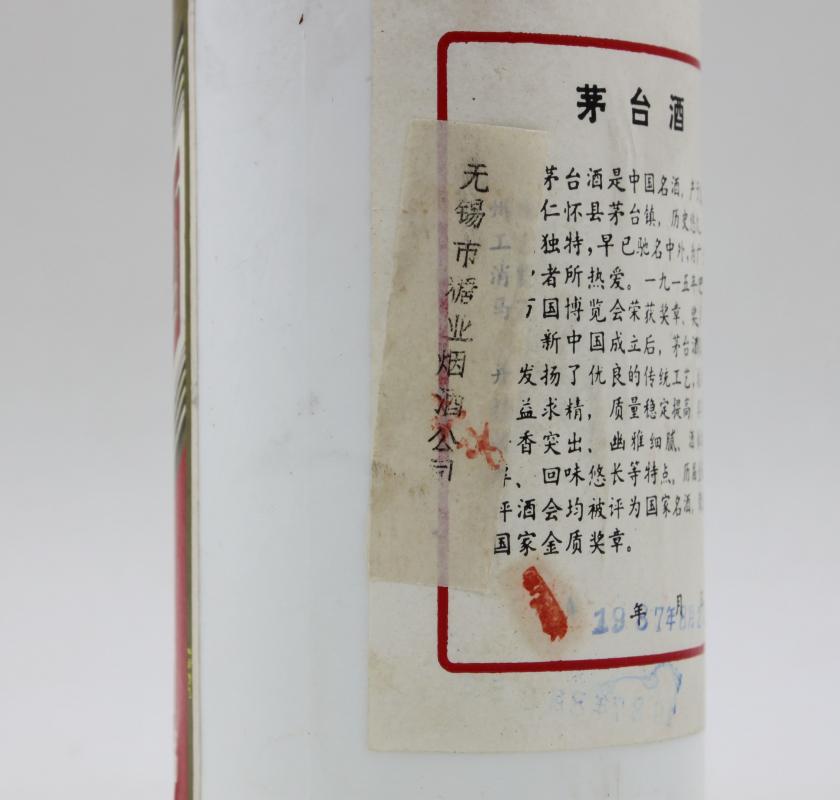 茅台酒
茅台酒是中国名酒，产
仁怀县茅台镇，历史悠
独特，早已驰名中外，
者所热爱。一九一五年巴
万国博览会荣获奖章、奖
新中国成立后，茅台酒
发扬了优良的传统工艺，
益求精，质量稳定提高
香突出、幽雅细腻、酒
回味悠长等特点。历
评酒会均被评为国家名酒，
国家金质奖章。
年 月
1987年8月2
无锡市糖业烟酒公司